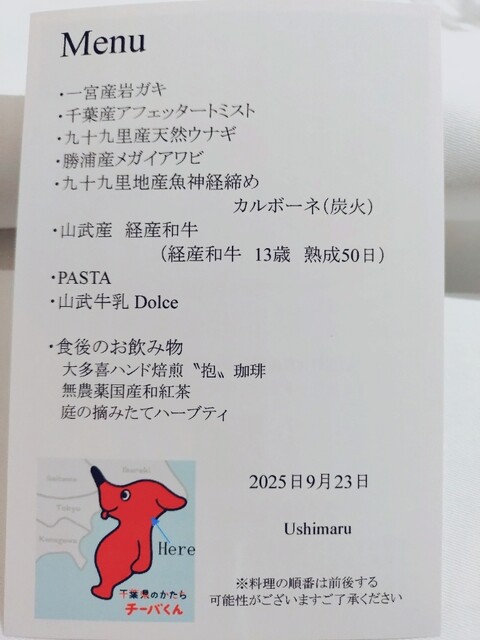 Menu
・一宮産岩ガキ
・千葉産アフェッタートミスト
・九十九里産天然ウナギ
・勝浦産メガイアワビ
・九十九里地産魚神経締め
カルボーネ(炭火)
・山武産 経産和牛
(経産和牛 13歳 熟成50日)
・PASTA
・山武牛乳 Dolce
・食後のお飲み物
大多喜ハンド焙煎〝抱〟珈琲
無農薬国産和紅茶
庭の摘みたてハーブティ
Ibaraki
Saitama
Tokyo
Kanagawa
Here
千葉県のかたち
チーバくん
2025日9月23日
Ushimaru
※料理の順番は前後する
可能性がございますご了承ください